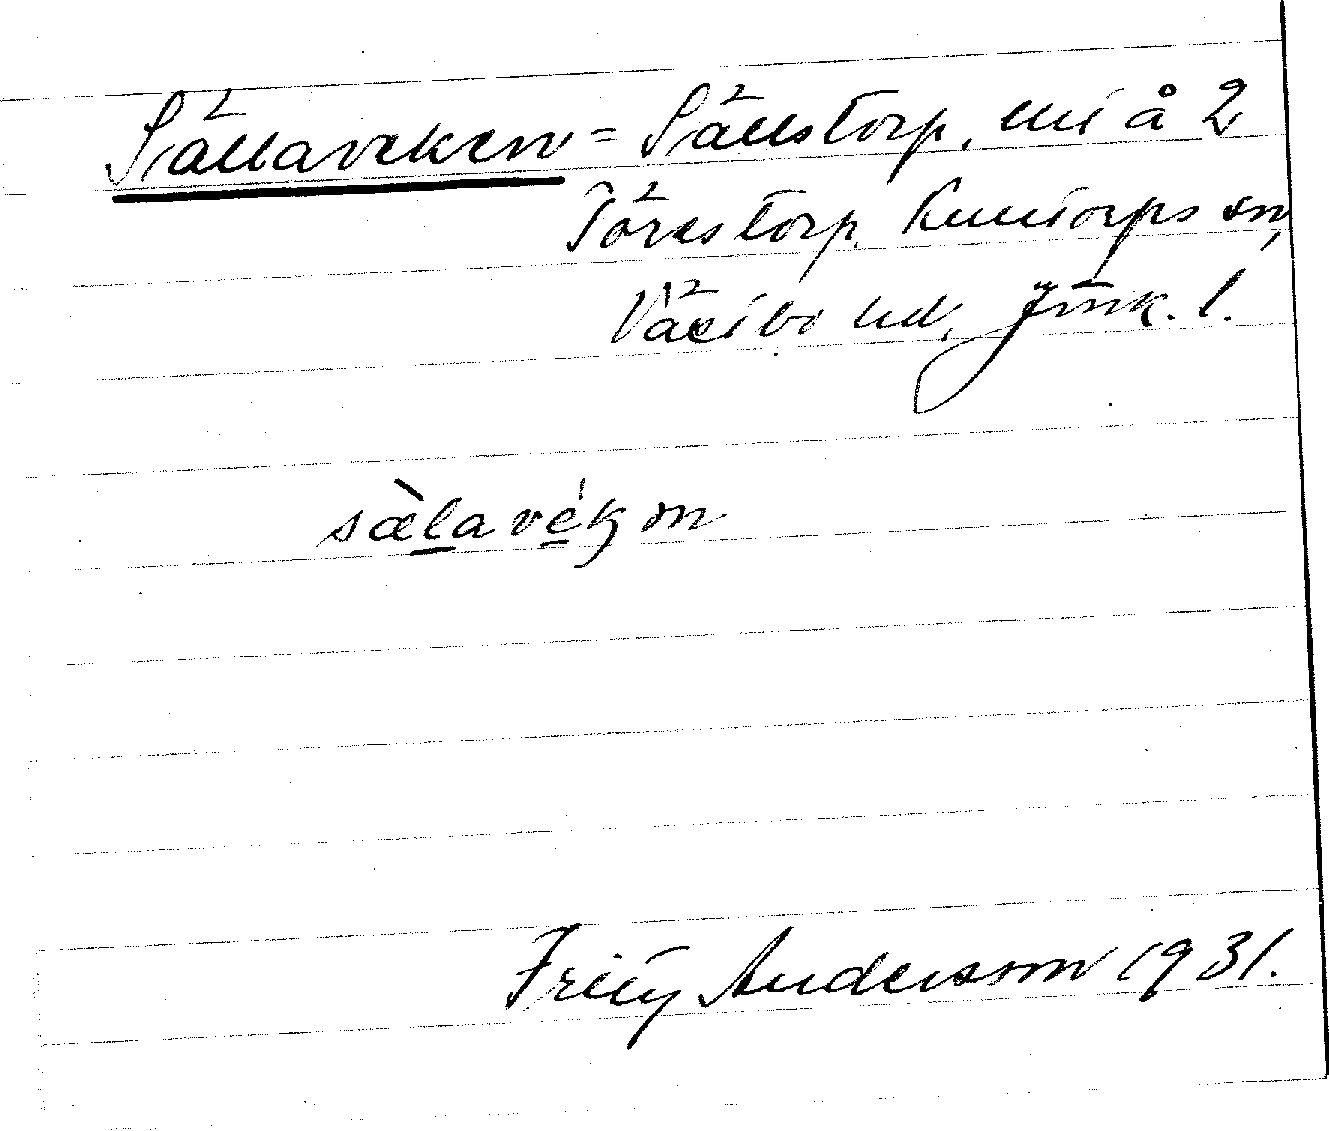 Sällaveken = Sällstorp, uti å 2
Törestorp, Kulltorps sn,
Västbo hd, Jönk. l.
sælavékən
Frity Anderson 1931.